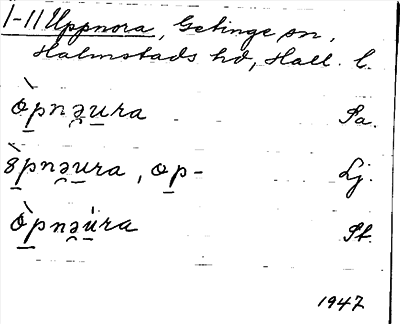 1-11 Uppnora, Getinge sn,
Halmstads hd, Hall. l.
òpnəura Sa.
8̀pnəura, op- Lj.
òpnəüra St.
1947